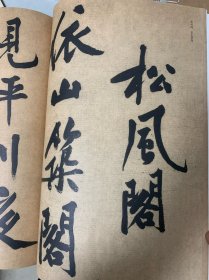 松風閣
依山築閣
見平川夜